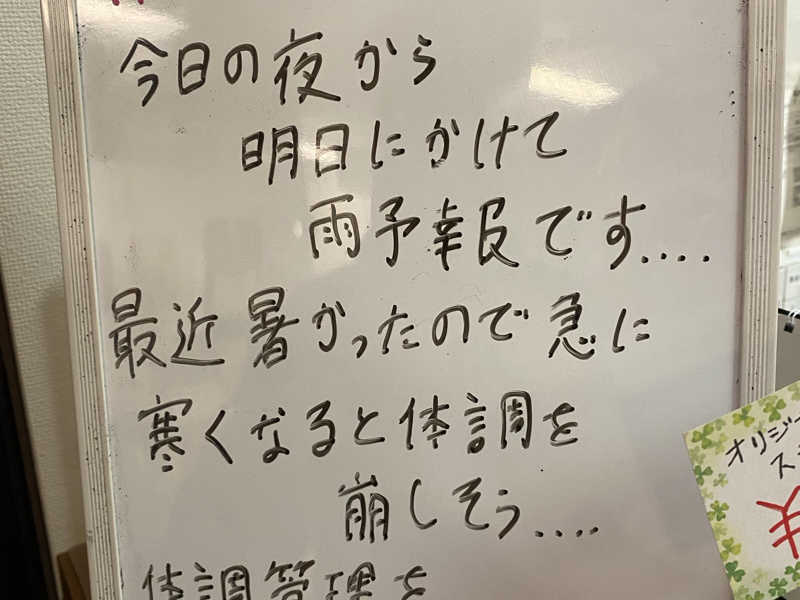 今日の夜から
明日にかけて
雨予報です....
最近暑かったので急に
寒くなると体調を
崩しそう....
体調管理を
オリジ
ス
¥